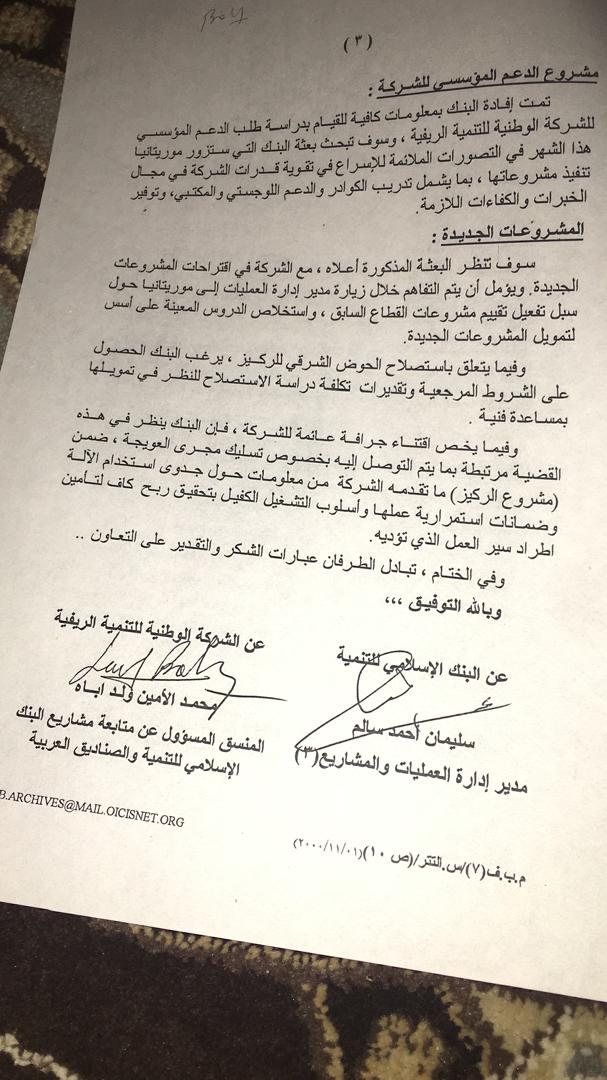 Boly
( ٣ )
مشروع الدعم المؤسسي للشركة :
تمت إفادة البنك بمعلومات كافية للقيام بدراسة طلب الدعم المؤسسي
للشركة الوطنية للتنمية الريفية ، وسوف تبحث بعثة البنك التي ستزور موريتانيا
هذا الشهر في التصورات الملائمة للإسراع في تقوية قدرات الشركة في مجال
تنفيذ مشروعاتها ، بما يشمل تدريب الكوادر والدعم اللوجستي والمكتبي، وتوفير
الخبرات والكفاءات اللازمة.
المشروعات الجديدة :
سوف تنظر البعثة المذكورة أعلاه ، مع الشركة في اقتراحات المشروعات
الجديدة. ويؤمل أن يتم التفاهم خلال زيارة مدير إدارة العمليات إلى موريتانيا حول
سبل تفعيل تقييم مشروعات القطاع السابق ، واستخلاص الدروس المعينة على أسس
لتمويل المشروعات الجديدة.
وفيما يتعلق باستصلاح الحوض الشرقي للركيز ، يرغب البنك الحصول
على الشروط المرجعية وتقديرات تكلفة دراسة الاستصلاح للنظر في تمويلها
بمساعدة فنية .
وفيما يخص اقتناء جرافة عائمة للشركة ، فإن البنك ينظر في هذه
القضية مرتبطة بما يتم التوصل إليه بخصوص تسليك مجرى العويجة ، ضمن
(مشروع الركيز) ما تقدمه الشركة من معلومات حول جدوى استخدام الآلة
وضمانات استمرارية عملها وأسلوب التشغيل الكفيل بتحقيق ربح كاف لتأمين
اطراد سير العمل الذي تؤديه.
وفي الختام ، تبادل الطرفان عبارات الشكر والتقدير على التعاون ..
وبالله التوفيق ،،،
عن البنك الإسلامي للتنمية
سليمان أحمد سالم
مدير إدارة العمليات والمشاريع(٣)
عن الشركة الوطنية للتنمية الريفية
محمد الأمين ولد اباه
المنسق المسؤول عن متابعة مشاريع البنك
الإسلامي للتنمية والصناديق العربية
B.ARCHIVES@MAIL.OICISNET.ORG
م.ب.ف(٧)/س.التتر/(ص ١٠)(٢٠٠٠/١١/٠١)